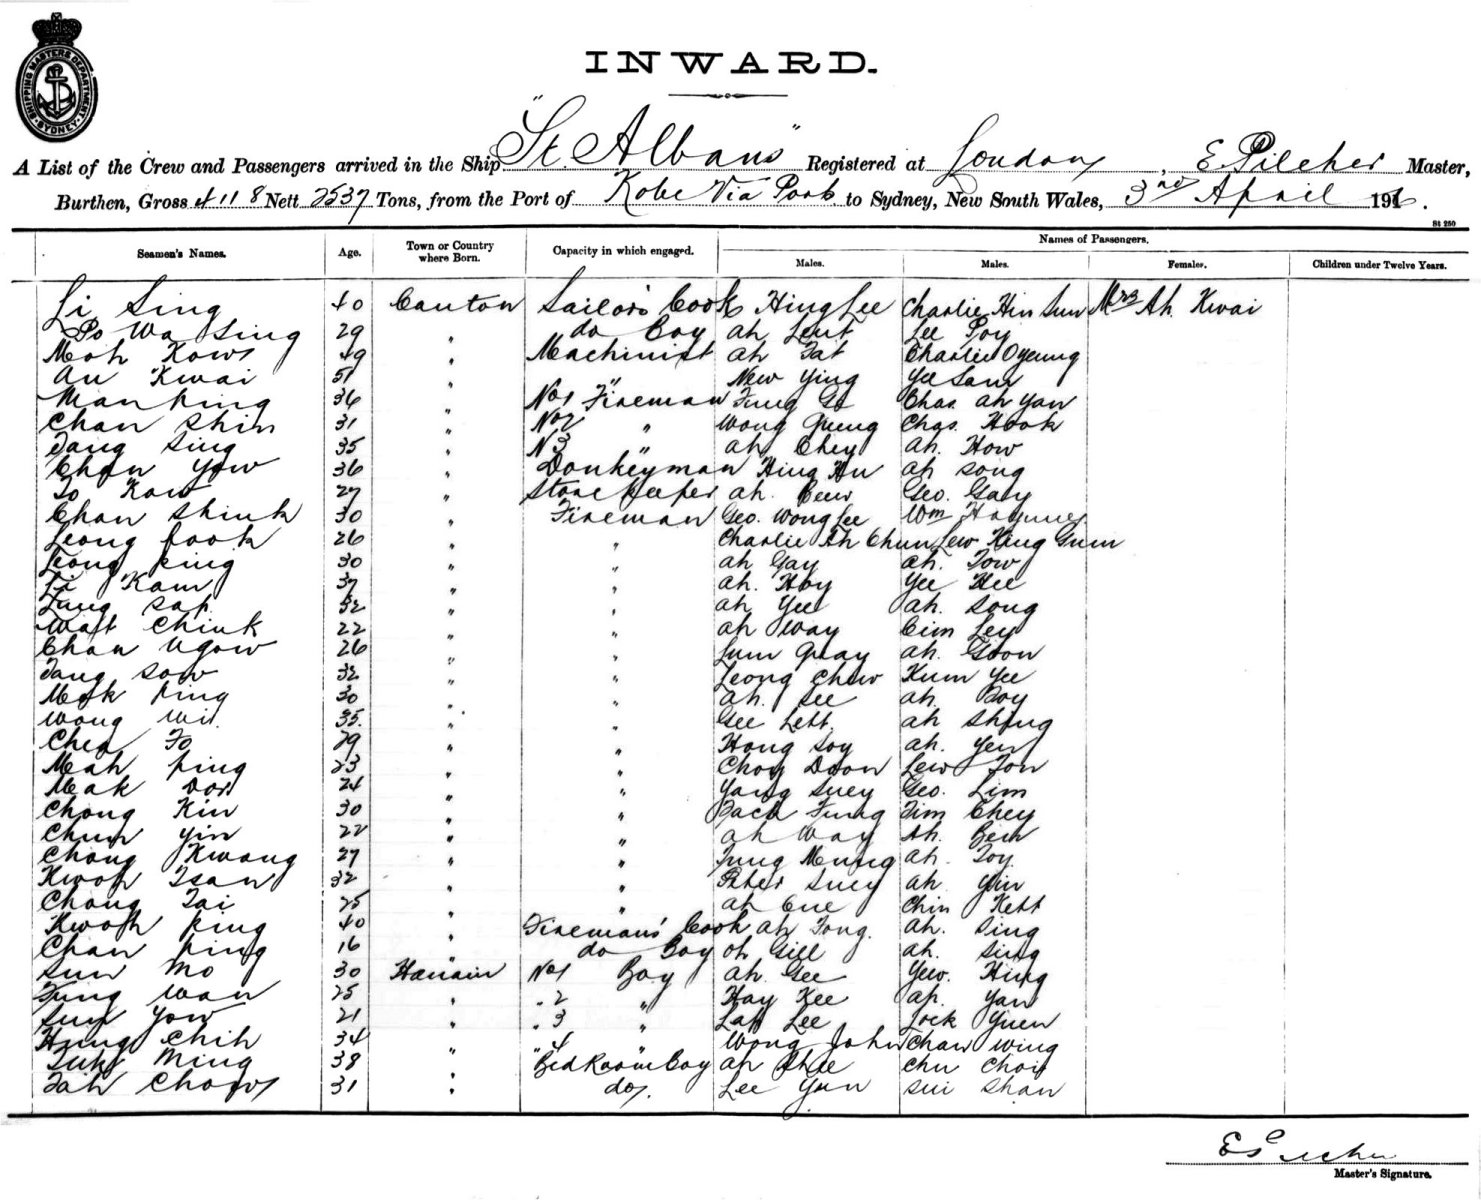 SHIPPING MASTERS DEPARTMENT SYDNEY
INWARD.
A List of the Crew and Passengers arrived in the Ship "St. Albans" Registered at London, E Pilcher Master,
Burthen, Gross 4118 Nett 2537 Tons, from the Port of Kobe Via Ports to Sydney, New South Wales, 3rd April 191
St 250
Seamen's Names. Age. Town or Country where Born. Capacity in which engaged. Names of Passengers.
Males. Males. Females. Children under Twelve Years.
Li Sing 40 Canton Sailors Cook Hing Lee Charlie Hin Sun Mrs Ah. Kwai
Po Wa Sing 29 " do Boy ah Leut Lee Poy
Mah Kows 49 " Machinist ah Tat Charlie Oyeung
au Kwai 51 " " New Ying Yee Sam
Man King 36 " No1 Fireman Fung Chas. ah Yan
Chan Shin 31 " No2 " Wong Quing Chas. Hook
Tang Sing 35 " N3 " ah Chey ah. How
Chan Yow 36 " Donkeyman Hing Hu ah song
To Kaw 27 " Store Keeper ah. Geo. Gay
Chan Shink 30 " Fireman Geo. Wong Lee Wm
Leong fook 26 " " Charlie Ah Chun Lew King Gum
Leong King 30 " " ah Gay ah. Tow
Li Kam 37 " " ah. Hoy Yee Hee
Lung Sap. 32 " " ah Yee ah. Song
Wat Chink 22 " " ah Way Cim Ley
Chan Ngow 26 " " Lum Quay ah. Goon
Tang Sow 32 " " Leong Chew Kum Yee
Mok King 30 " " ah. See ah. Boy
Wong Wi 35. " " Gee Lett. ah Shing
Chea Fo 29 " " Hong Soy ah. Yen
Mah King 23 " " Choy Doon Lew Ton
Mak Dor 24 " " Yang Suey Geo. Lim
Chong Kin 30 " " Fung Tim Chey
Chun Yin 22 " " ah Way Ah. Bew
Chong Kwong 27 " " Fung Meung ah. Toy.
Kwok Tsan 32 " " Peter Suey ah Yin
Chong Tai 25 " " ah Cue Chin Kett
Kwok King 40 " Fireman's Cook ah Tong. ah. Sing
Chan King 16 " do Boy oh Gill ah. Sing
Sun Mo 30 Hanain No1 Boy ah Gee Yew. Hing
Tung Wan 25 " " 2 " Hay Kee ah. Yan
Sun Yow 21 " " 3 " Lah Lee Lock Yuen
Hung Chih 34 " " 4 " Wong John Chan Wing
Tuk Ming 38 " Bed Room Boy ah Shee Chu Choy
Tah Chow 31 " do. Lee Yun Sui Shan
E Pilcher
Master's Signature.